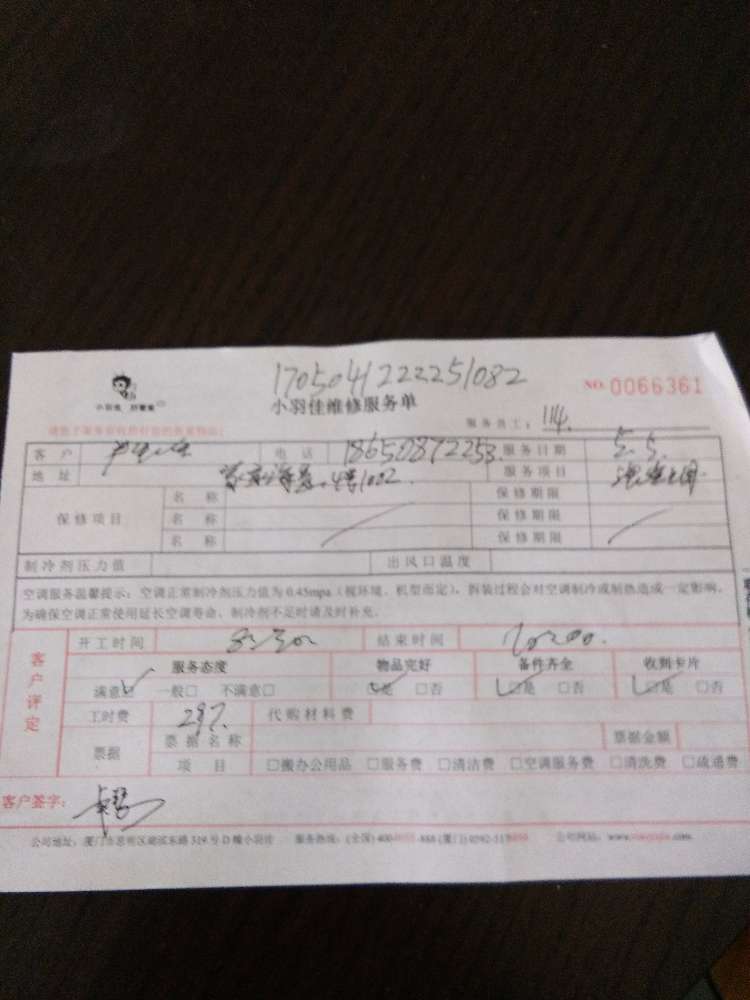 170504122251082
小羽佳 好帮家
小羽佳维修服务单
NO. 0066361
服务员工: 114.
客户 电话 18650872253. 服务日期 5.5.
地址 4 1002. 服务项目
保修项目 名称 保修期限
名称 保修期限
名称 保修期限
制冷剂压力值 出风口温度
空调服务温馨提示:空调正常制冷剂压力值为0.45mpa(视环境、机型而定),拆装过程会对空调制冷或制热造成一定影响,
为确保空调正常使用延长空调寿命,制冷剂不足时请及时补充。
客户评定
开工时间 8:30 结束时间 10:00.
服务态度 物品完好 备件齐全 收到卡片
满意□ 一般□ 不满意□ □是 □否 □是 □否 □是 □否
工时费 297. 代购材料费
票据 票据名称 票据金额
项目 □搬办公用品 □服务费 □清洁费 □空调服务费 □清洗费 □疏通费
客户签字:
公司地址:厦门市思明区湖滨东路319号D幢小羽佳 服务热线:(全国)400 -888 (厦门)0592- 公司网站:www. .com